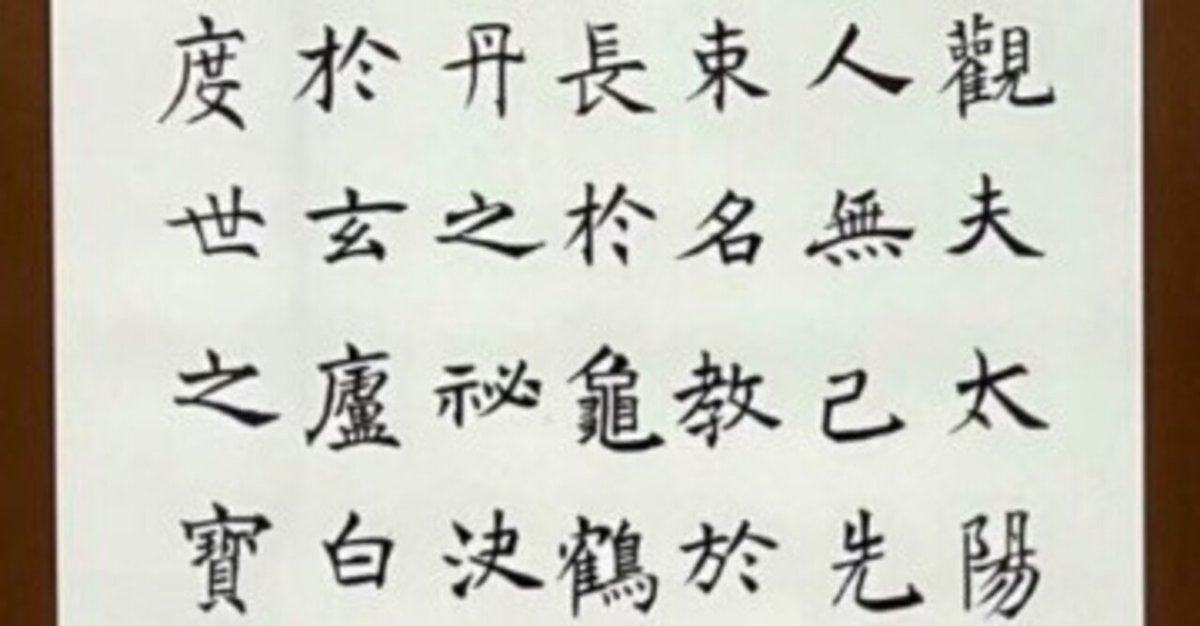 觀夫太陽
人無己先
束名教於
長於龜鶴
丹之祕決
於玄廬白
度世之寶